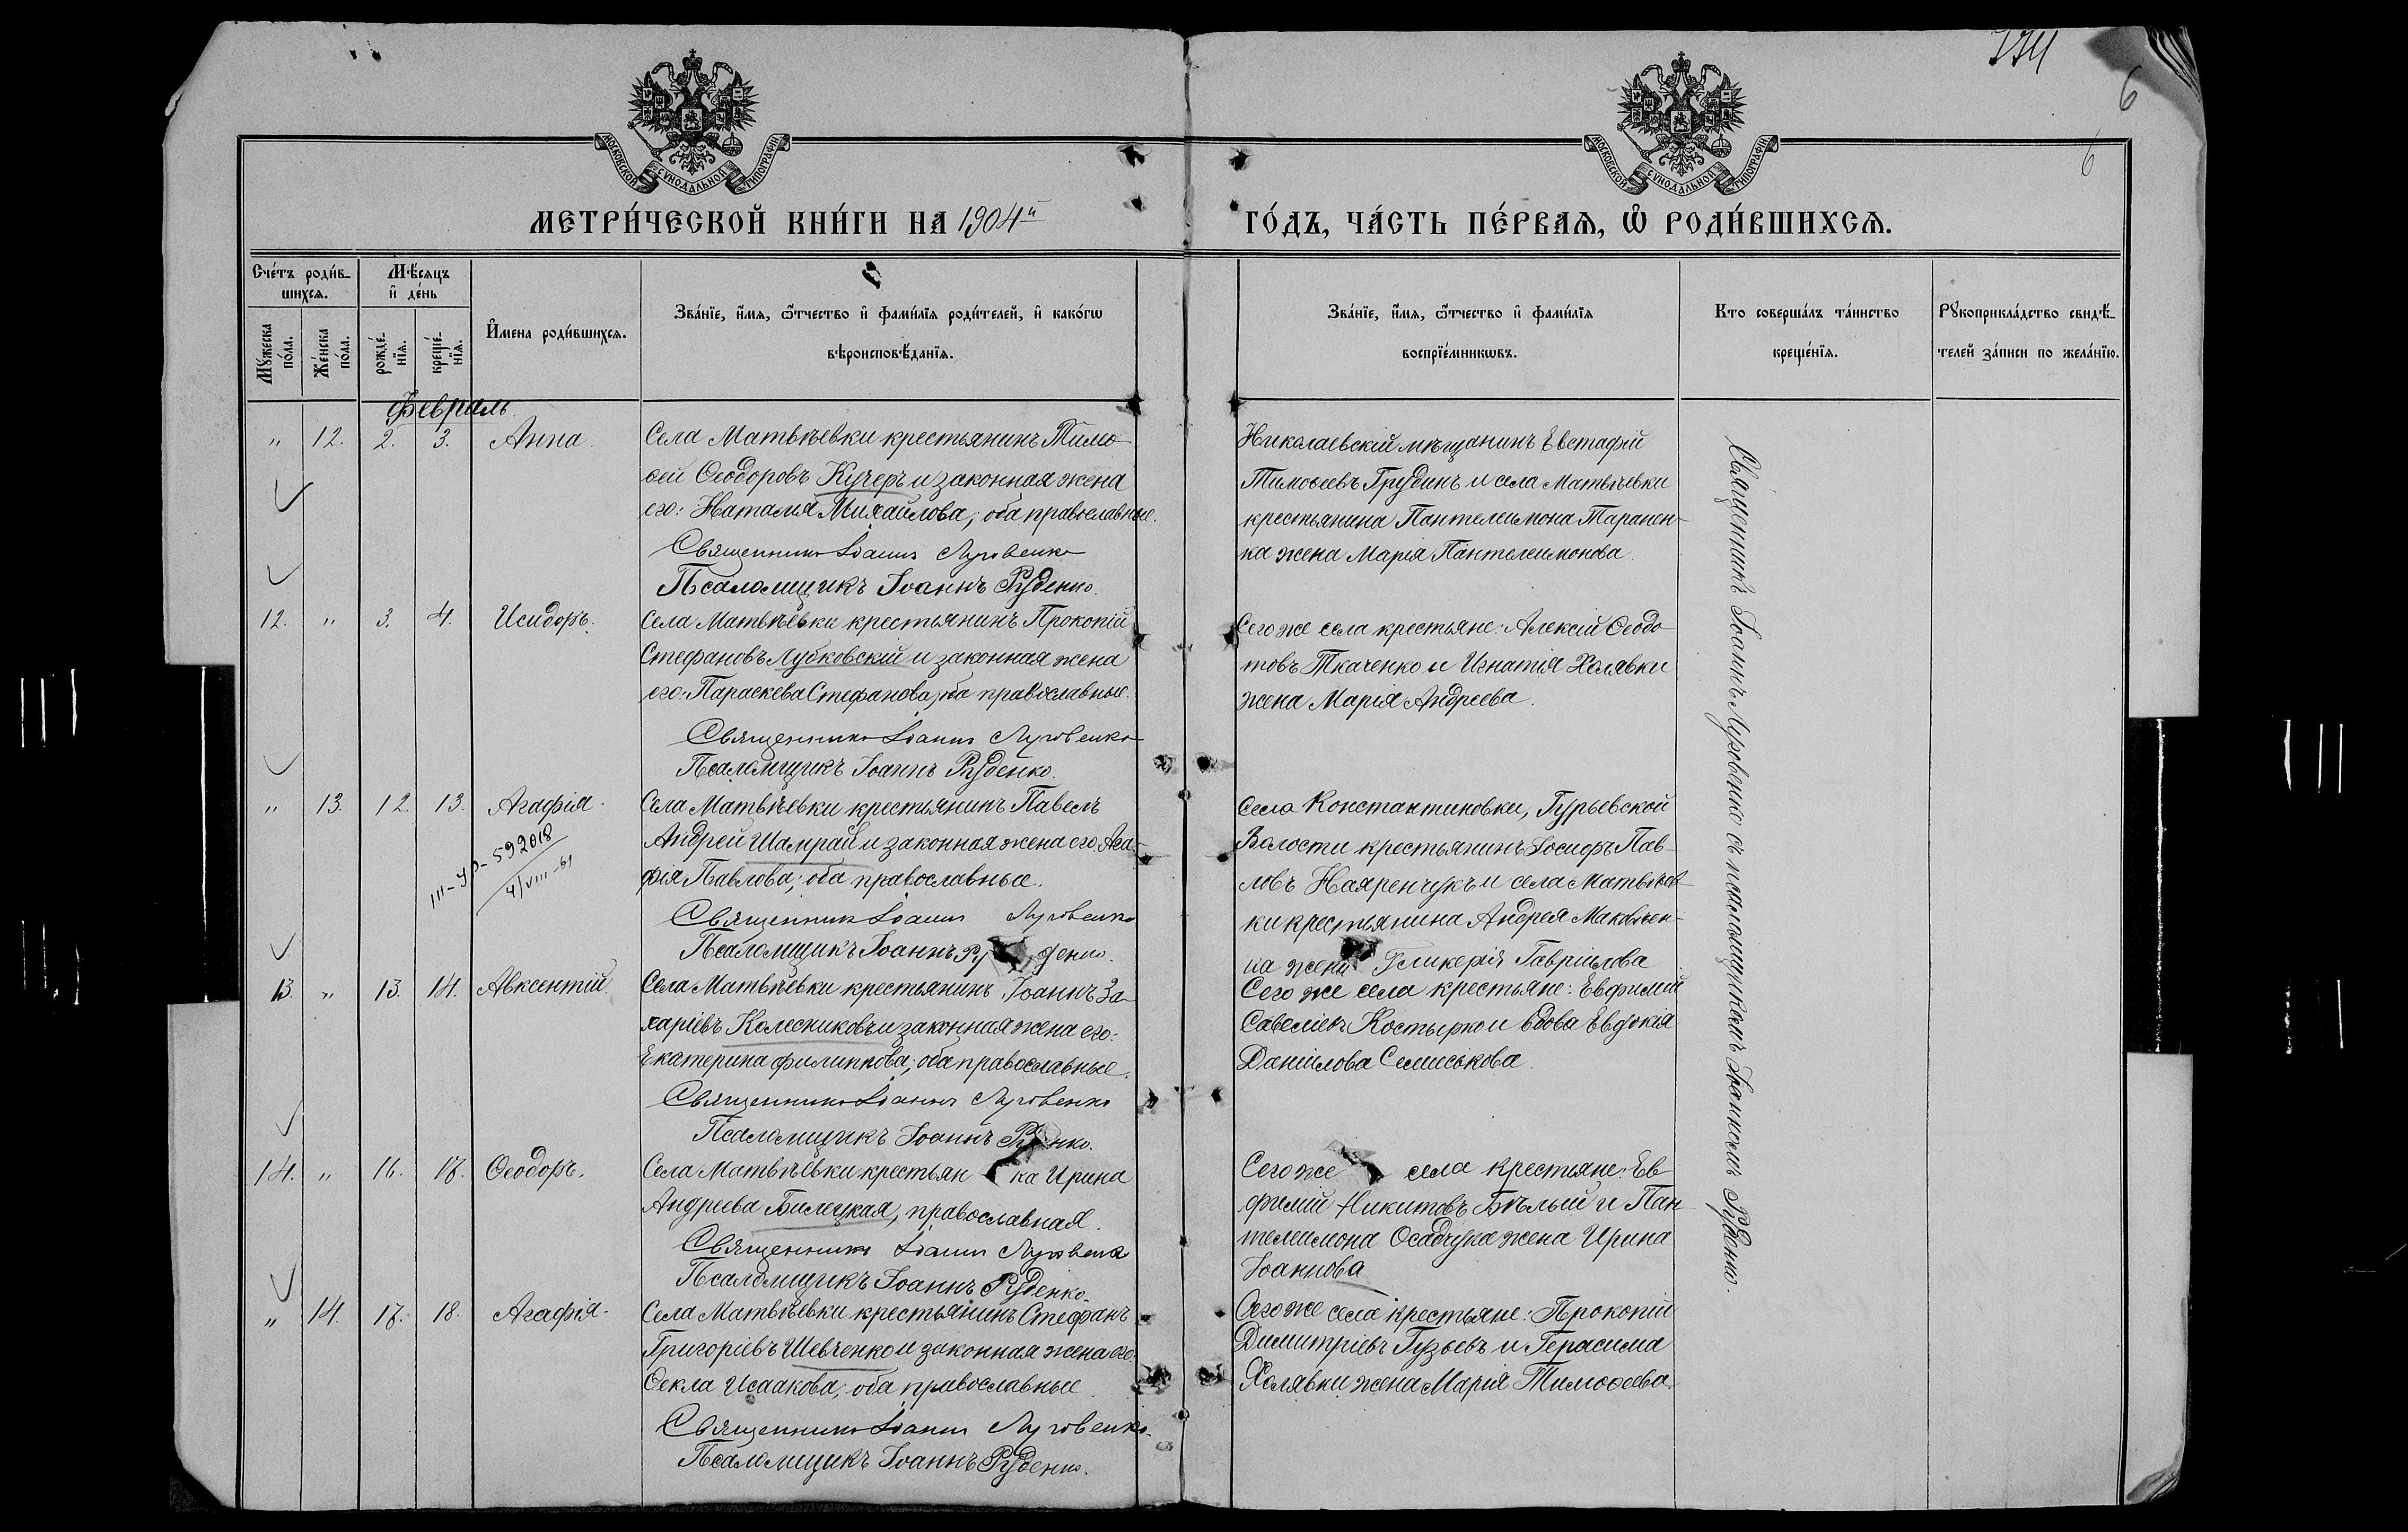 6
6
МОСКОВСКОЙ СѴНОДАЛЬНОЙ ТИПОГРАФІИ
МОСКОВСКОЙ СѴНОДАЛЬНОЙ ТИПОГРАФІИ
МЕТРИ́ЧЕСКОЙ КНИ́ГИ НА 1904й ГО́ДЪ, ЧА́СТЬ ПЕ́РВАѦ, Ѡ҆ РОДИ́ВШИХСѦ.
Сче́тъ роди́в-
шихсѧ.
Мѣ́сяцъ
и҆ де́нь
Мꙋ́жеска по́ла.
Же́нска по́ла.
рожде́-
нїѧ.
креще́-
нїѧ.
И҆мена роди́вшихсѧ.
Зва́нїе, и҆́мѧ, ѻ҆́тчество и҆ фами́лїѧ роди́телей, и҆ како́гѡ
вѣроисповѣ́данїѧ.
Зва́нїе, и҆́мѧ, ѻ҆́тчество и҆ фами́лїѧ
воспрїе́мникѡвъ.
Кто соверша́лъ та́инство
креще́нїѧ.
Рꙋкоприкла́дство свидѣ́-
телей за́писи по жела́нїю.
Февраль
" 12. 2. 3. Анна.
Села Матвѣевки крестьянинъ Тимо-
ѳей Ѳеодоровъ Кучеръ и законная жена
его: Наталія Михаилова; оба православные.
Священникъ Іоаннъ Луговенко
Псаломщикъ Іоаннъ Руденко.
Николаевскій мѣщанинъ Евстафій
Тимоѳеевъ Грудинъ и села Матвѣевки
крестьянина Пантелеимона Таранен-
ка жена Марія Пантелеимонова.
12. " 3. 4. Исидоръ.
Села Матвѣевки крестьянинъ Прокопій
Стефановъ Лубковскій и законная жена
его: Параскева Стефанова, оба православные.
Священникъ Іоаннъ Луговенко
Псаломщикъ Іоаннъ Руденко.
Сего же села крестьяне: Алексій Ѳеодо
товъ Ткаченко и Игнатія Холявки
жена Марія Андреева.
" 13. 12. 13. Агафія.
III-УР-592018
4/VIII-61
Села Матвѣевки крестьянинъ Павелъ
Андрей Шамрай и законная жена его: Ага-
фія Павлова; оба православные.
Священникъ Іоаннъ Луговенко
Псаломщикъ Іоаннъ Ру денко.
Села Константиновки, Гурьевской
Волости крестьянинъ Іосифъ Пав-
ловъ Наяренчукъ и села Матвѣев-
ки крестьянина Андрея Маковѣен-
ка жена Гликерія Гавріилова
13. " 13. 14. Авксентій
Села Матвѣевки крестьянинъ Іоаннъ За-
харіевъ Колесниковъ и законная жена его:
Екатерина Филиппова; оба православные.
Священникъ Іоаннъ Луговенко
Псаломщикъ Іоаннъ Ру енко.
Сего же села крестьяне: Евфимій
Савеліевъ Костырко и вдова Евдокія
Даніилова Семиськова.
14. " 16. 17. Ѳеодоръ.
Села Матвѣевки крестьян ка Ирина
Андреева Билецкая, православная.
Священникъ Іоаннъ Луговенко
Псаломщикъ Іоаннъ Руденко.
Сего же села крестьяне: Ев-
фимій Никитовъ Бѣлый и Пан
телеимона Осадчука жена Ирина
Іоаннова
" 14. 17. 18. Агафія.
Села Матвѣевки крестьянинъ Стефанъ
Григоріевъ Шевченко и законная жена его:
Ѳекла Исаакова, оба православные.
Священникъ Іоаннъ Луговенко
Псаломщикъ Іоаннъ Руденко.
Сего же села крестьяне: Прокопій
Димитріевъ Гузьевъ и Герасима
Холявки жена Марія Тимоѳеева.
Священникъ Іоаннъ Луговенко съ псаломщикомъ Іоанномъ Руденко.